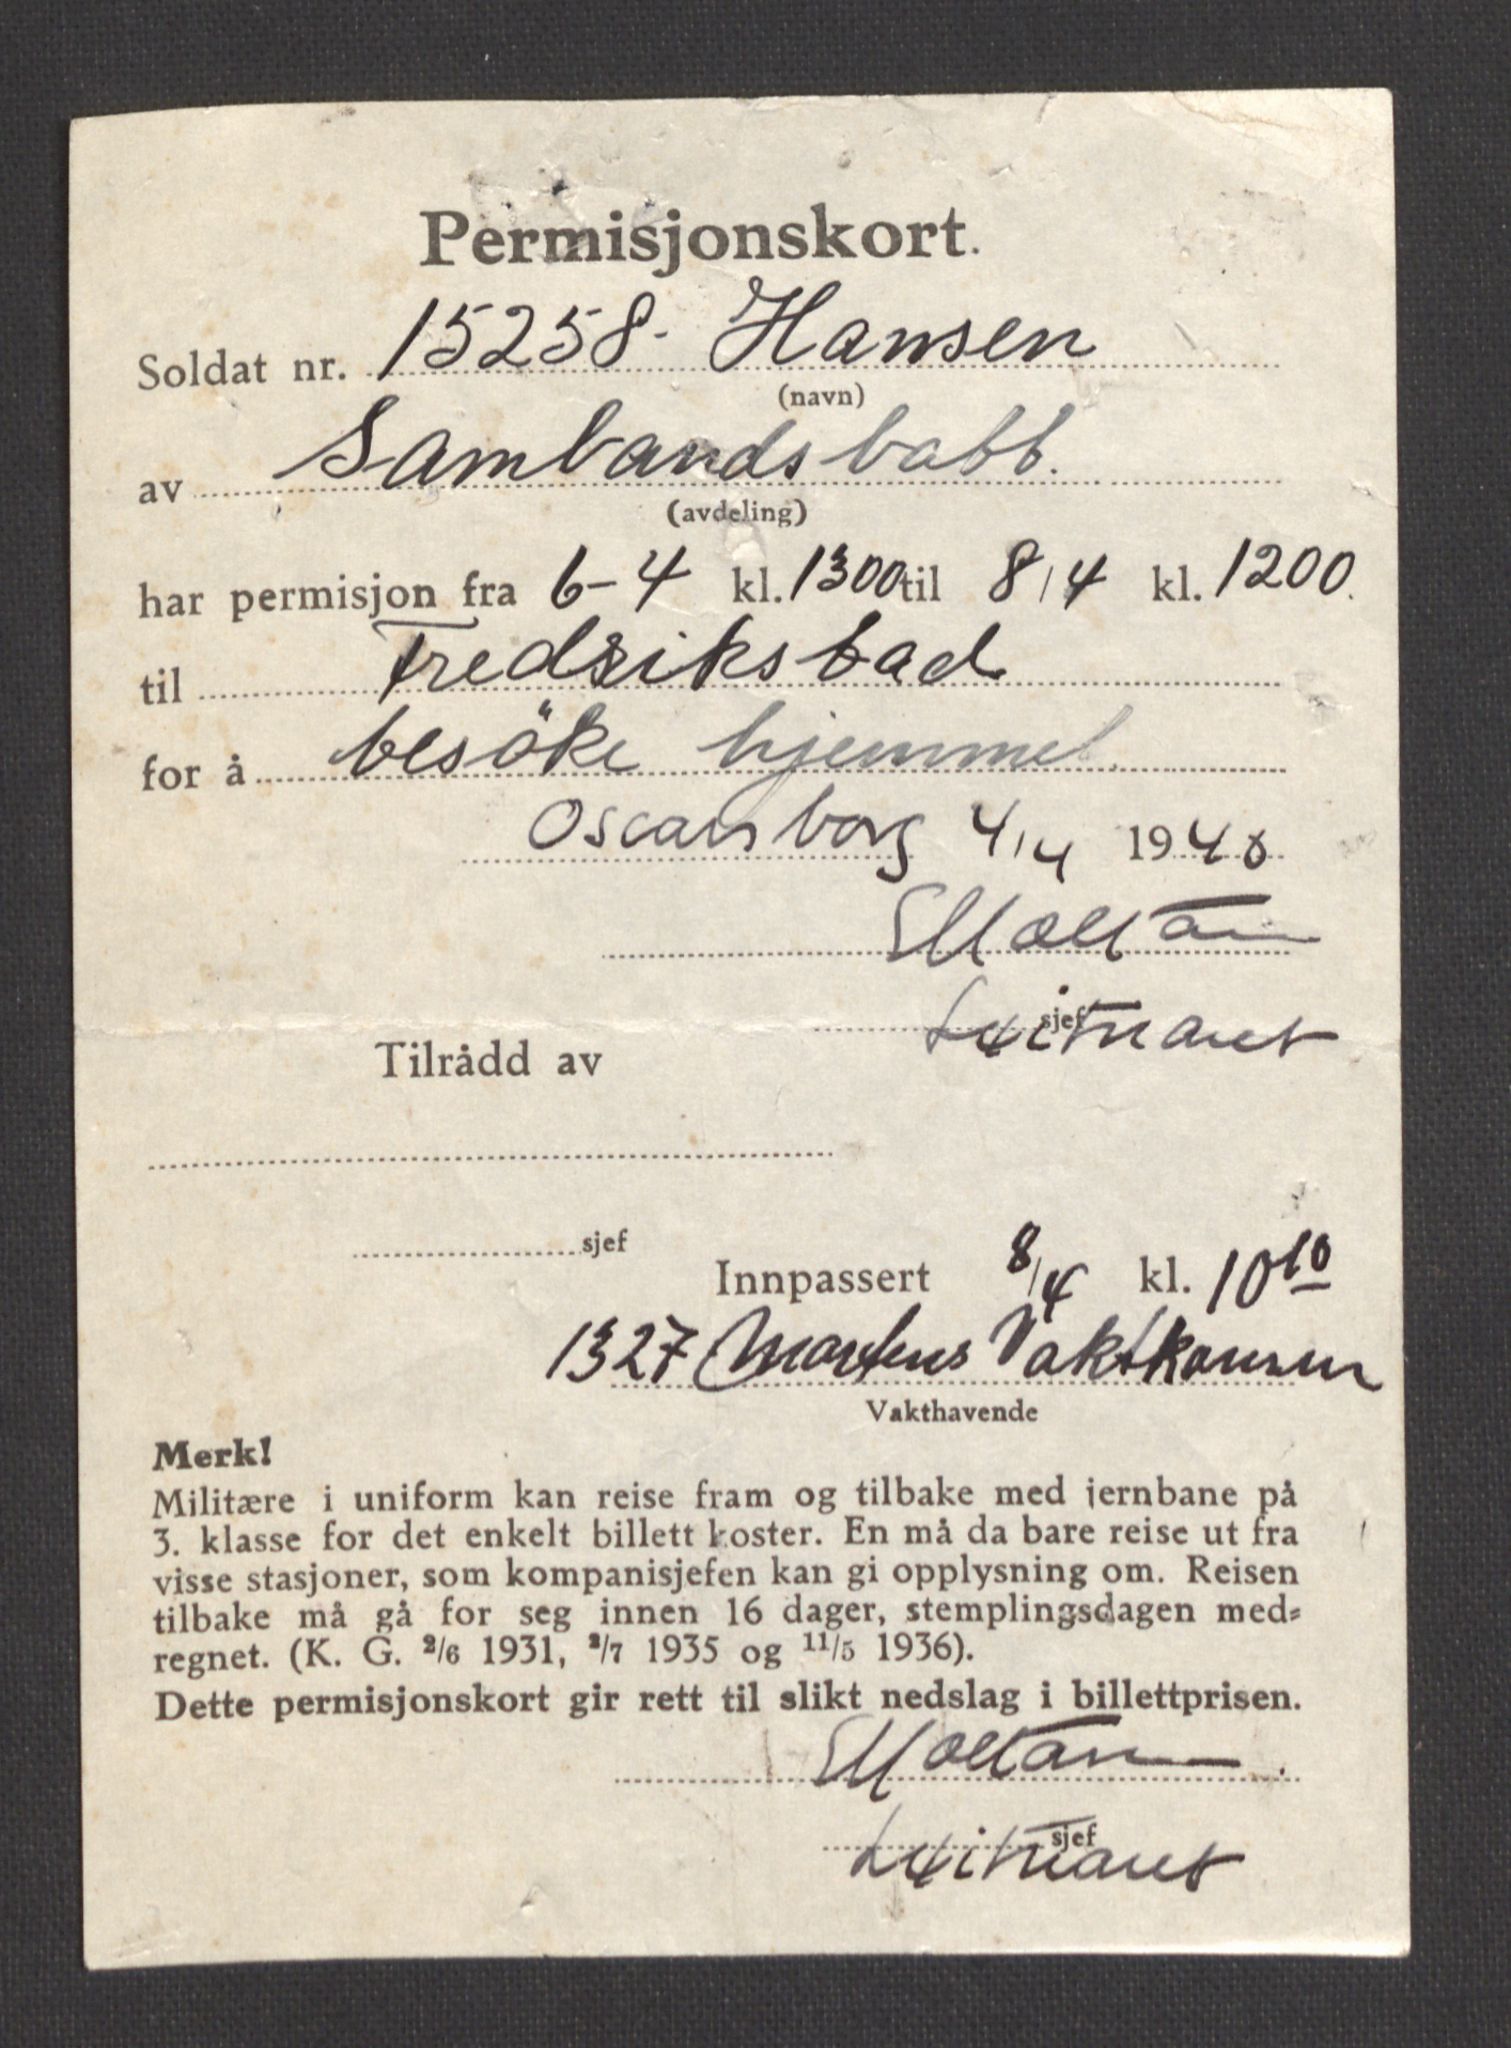 Permisjonskort.
Soldat nr. 15258- Hansen
(navn)
av Sambandsbatt.
(avdeling)
har permisjon fra 6-4 kl. 1300 til 8/4 kl. 1200.
til Fredrikstad
for å besöke hjemmet.
Oscarsborg 4/4 1940
sjef
Tilrådd av
sjef
Innpassert 8/4 kl. 10 10
1327 Martens Vaktkom
Vakthavende
Merk!
Militære i uniform kan reise fram og tilbake med jernbane på
3. klasse for det enkelt billett koster. En må da bare reise ut fra
visse stasjoner, som kompanisjefen kan gi opplysning om. Reisen
tilbake må gå for seg innen 16 dager, stemplingsdagen med=
regnet. (K. G. 2/6 1931, 2/7 1935 og 11/5 1936).
Dette permisjonskort gir rett til slikt nedslag i billettprisen.
sjef